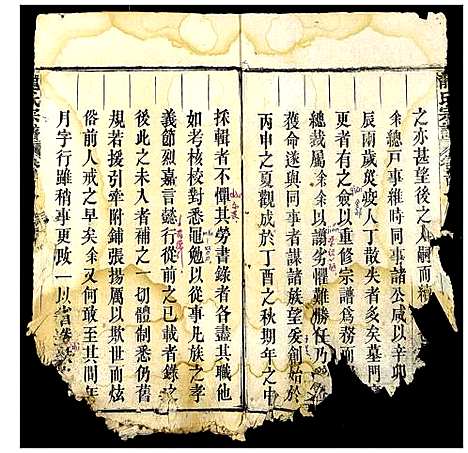 之亦甚望後之人嗣而續
余總戶事維時同事諸公咸以辛卯
辰兩歲災疫人丁散失者多矣墓門
更者有之僉以重修宗譜為務而
總裁屬余余以譾劣懼難勝任乃
獲命遂與同事者謀諸族望爰創始於
丙申之夏觀成於丁酉之秋期年之中
採輯者不憚其勞書錄者各盡其職他
如考核校對悉黽勉以從事凡族之孝
義節烈嘉言懿行從前之已載者錄之
後此之未入者補之一切體制悉仍舊
規若援引牽附鋪張揚厲以欺世而炫
俗前人戒之早矣余又何敢至其間年
月字行雖稍事更政一以省